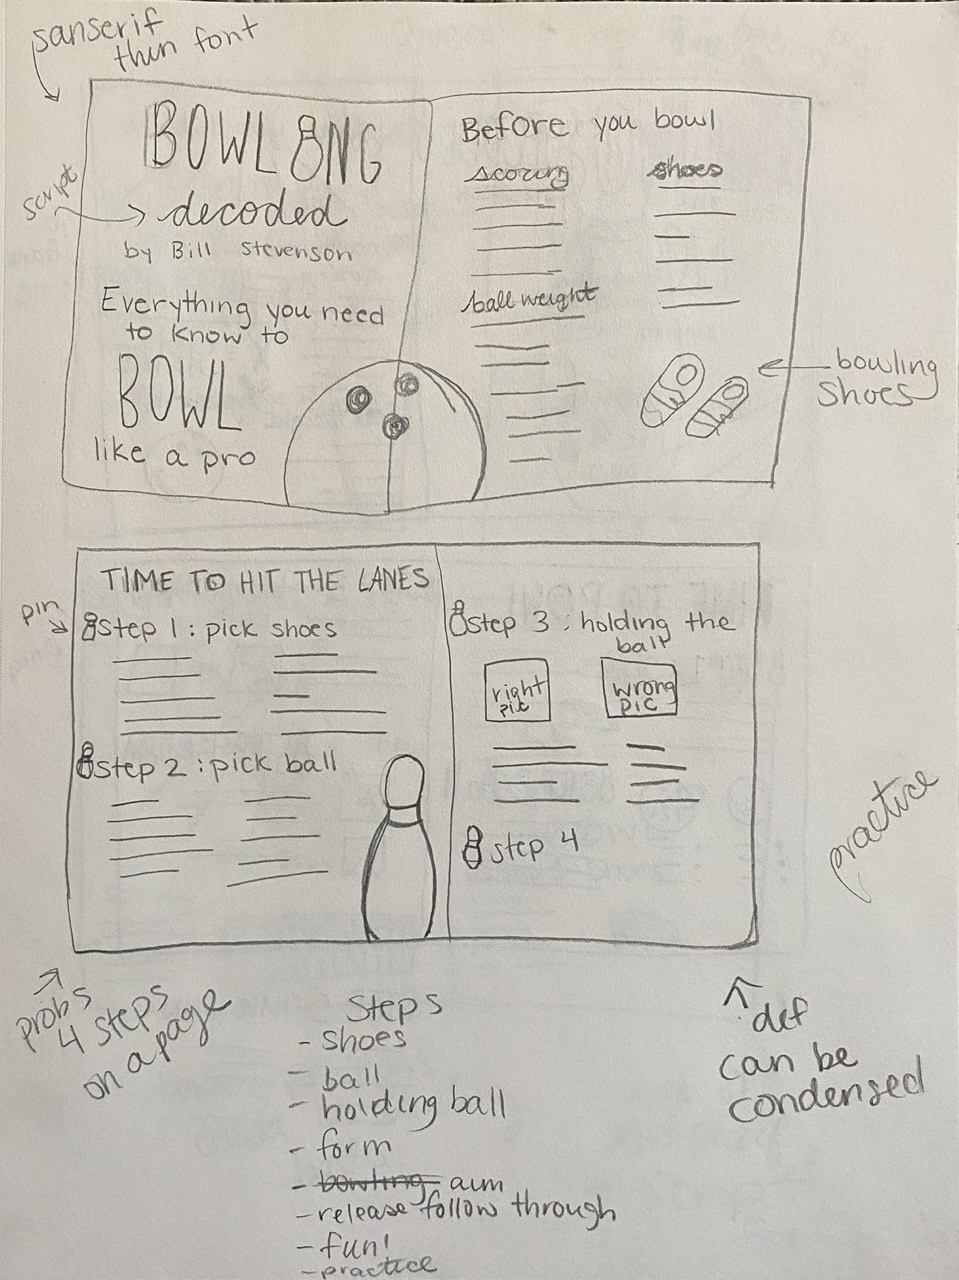 sanserif
thin font
BOWLING
script
decoded
by Bill Stevenson
Everything you need
to know to
BOWL
like a pro
Before you bowl
scoring
shoes
ball weight
bowling
shoes
TIME TO HIT THE LANES
pin
step 1: pick shoes
step 2: pick ball
step 3: holding the
ball
right
pic
wrong
pic
step 4
practice
probs
4 steps
on a page
def
can be
condensed
Steps
- shoes
- ball
- holding ball
- form
- bowling aim
- release follow through
- fun!
- practice